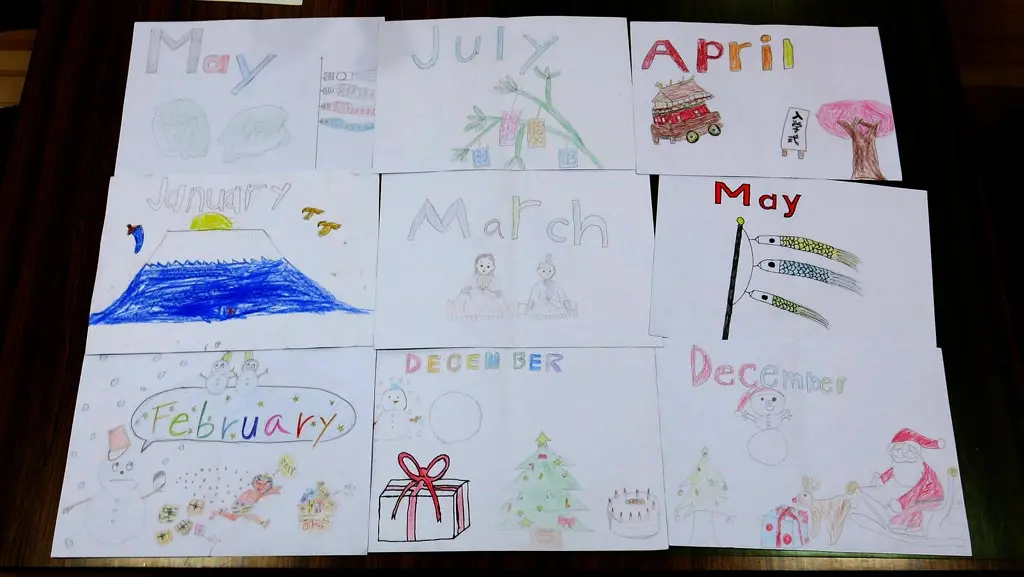 May
July
April
入学式
January
March
May
February
DECEMBER
December